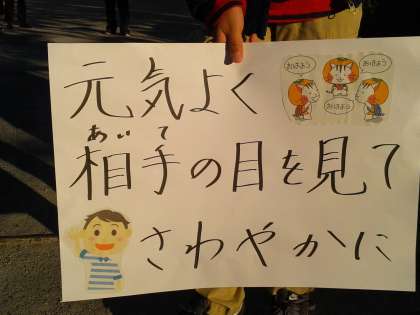 元気よく
おはよう
おはよう
おはよう
あいて
相手の目を見て
さわやかに